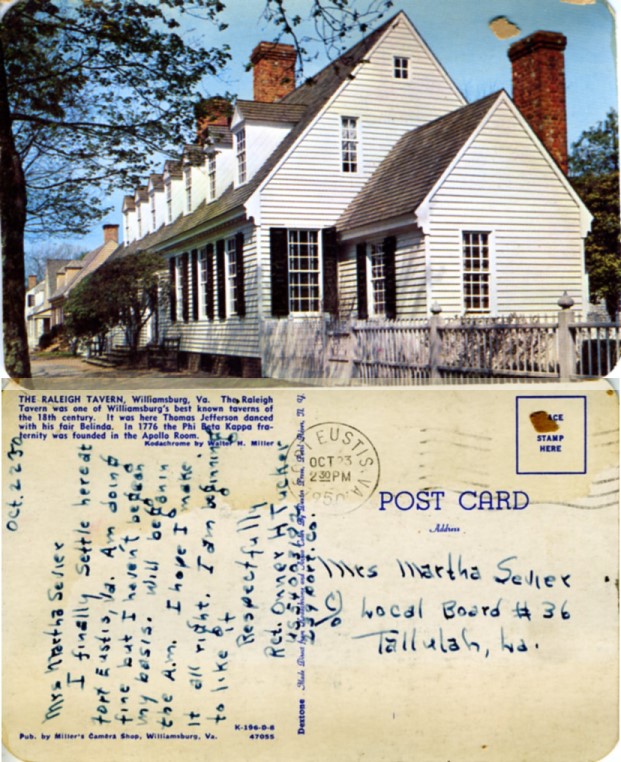 THE RALEIGH TAVERN, Williamsburg, Va. The Raleigh
Tavern was one of Williamsburg's best known taverns of
the 18th century. It was here Thomas Jefferson danced
with his fair Belinda. In 1776 the Phi Beta Kappa fra-
ternity was founded in the Apollo Room.
Kodachrome by Walter H. Miller
Oct. 22
Mrs Martha Sevier
I finally settle here at
Fort Eustis, Va. Am doing
fine but I haven't began
my basis. Will began in
the A.M. I hope I make
it all right. I am beginning
to like it
Respectfully
Rct. Onner H Tucker
Port. Co.
K-196-D-8
47055
Pub. by Miller's Camera Shop, Williamsburg, Va.
Dextone
EUSTIS, VA.
OCT 23
2 30 PM
1950
PLACE
STAMP
HERE
POST CARD
Address
Mrs Martha Sevier
c/o Local Board # 36
Tallulah, La.